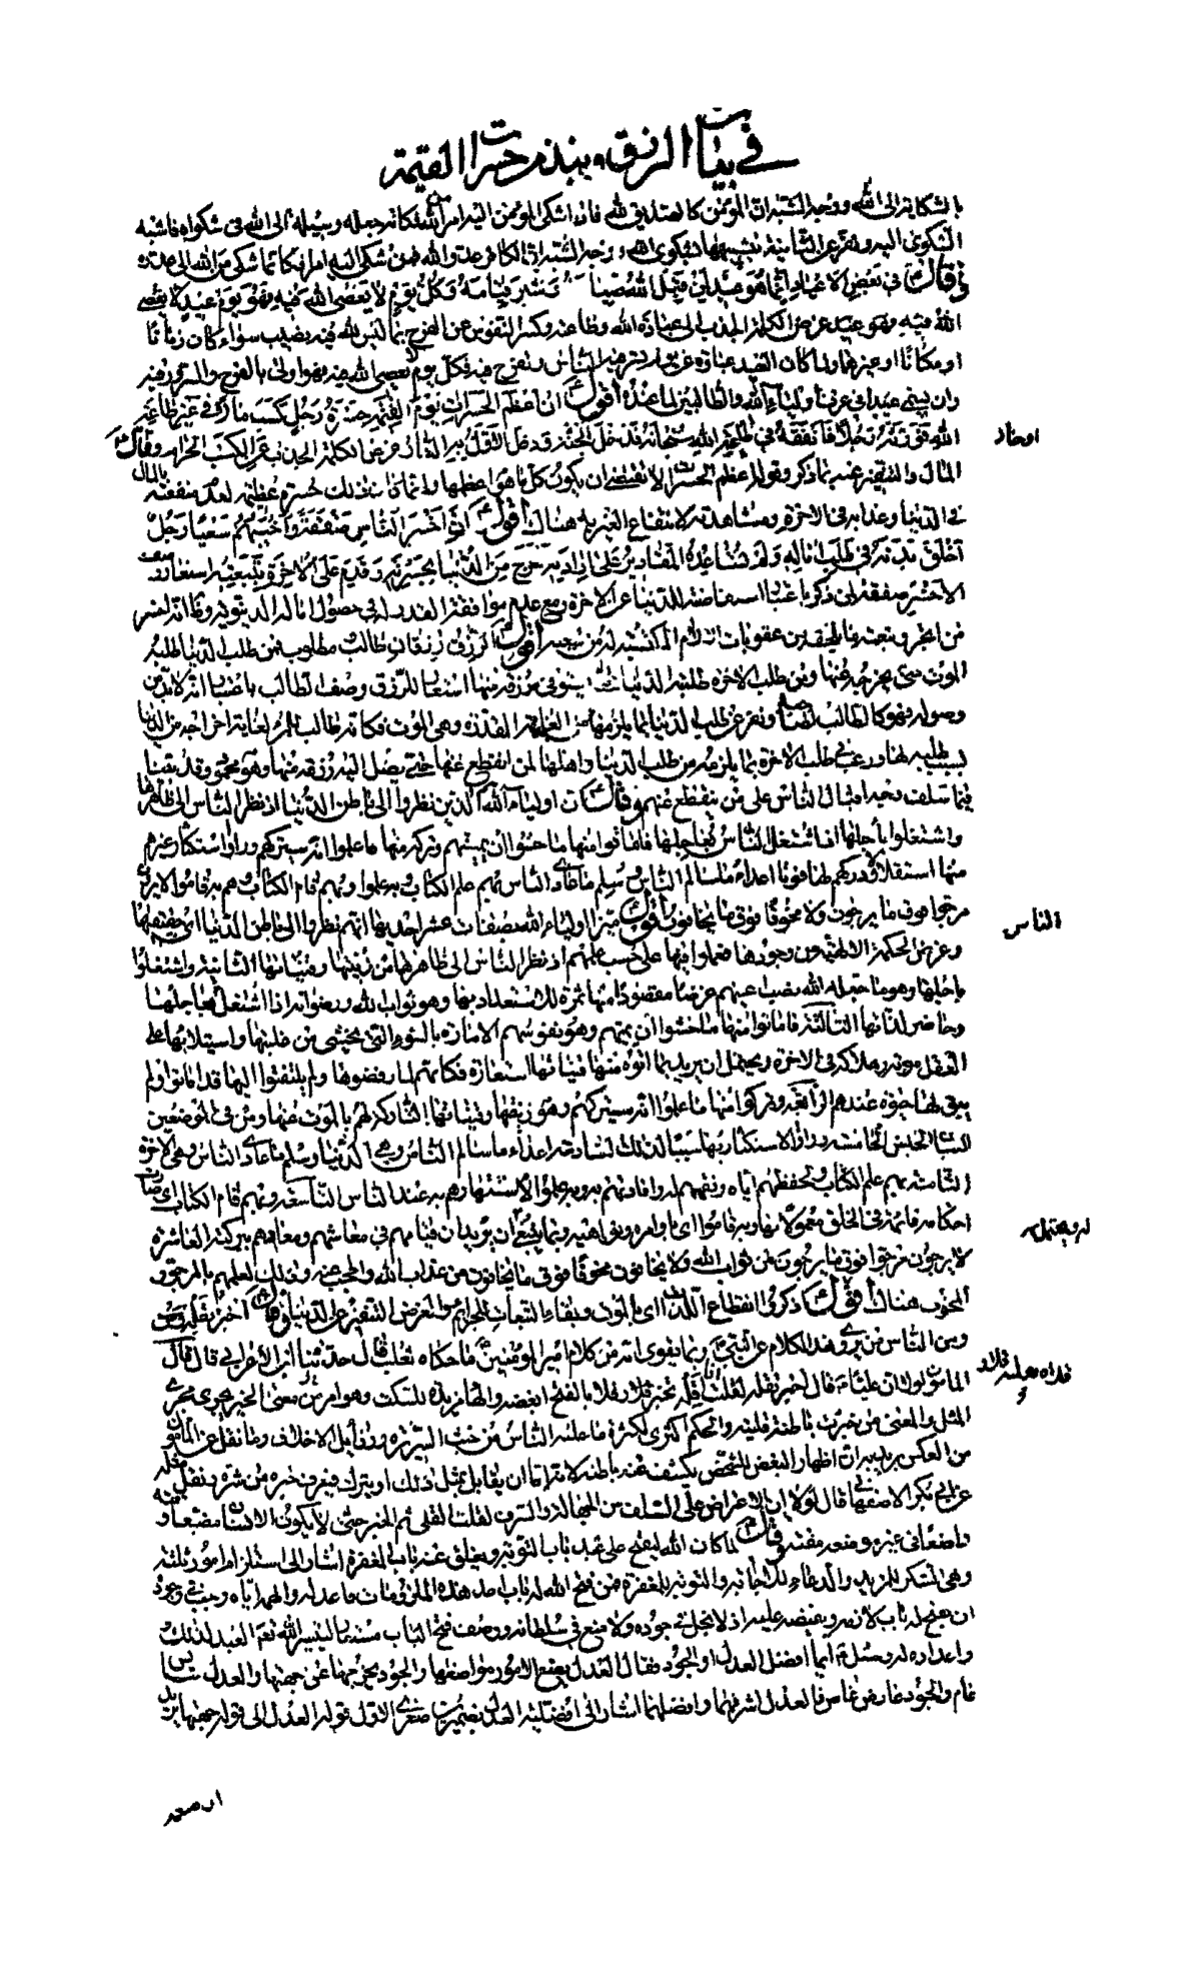 في بيان الرزق ونبذ من حسرات القيمة
بالشكاية الى الله ووجه الشبه ان المؤمن كالصديق لله فاذا اشتكى المؤمن اليه امر الله فكانه جعله وسيلة الى الله في شكواه فاشبه
الشكوى اليه ونفر عن الثانية بتشبيهها بشكوى الله ووجه الشبه ان الكافر عدو الله فمن شكى اليه امرا فكانما شكى من الله الى عدوه
وقال في بعض الاعياد انما هو عيد لمن قبل الله صيامه وشكر قيامه وكل يوم لا يعصى الله فيه فهو يوم عيد كلا يعصى
الله فيه فهو عيد غرض الكلمة الجذب الى عبادة الله وطاعته وكسر النفوس عن الفرح بما ليس لله فيه نصيب سواء كان زمانا
او مكانا او غيرهما ولما كان العيد عبارة عن يوم يسر فيه الناس وتفرح فيه فكل يوم لا يعصى الله فيه فهو اولى بالفرح والسرور فيه
وان يسمى عيدا في عرف اولياء الله والطالبين لما عنده اقول ان اعظم الحسرات يوم القيمة حسرة رجل كسب مالا في غير طاعة
الله فورثه رجلا فانفقه في طاعة الله سبحانه فدخل الجنة ودخل الاول به النار غرض الكلمة الجذب عن الكسب الحرام وقال
المال والتنفير عنه بما ذكر وقوله اعظم الحسرات لا تقتضي ان يكون كل ما هو اعظمها وانما كانت تلك حسرة عظيمة لعدم منفعته بالمال
في الدنيا وعذابه في الاخرة ومشاهدته لانتفاع الغير به هناك اقول ان اخسر الناس صفقة واخيبهم سعيا رجل
اخلق بدنه في طلب اماله ولم تساعده المقادير على ارادته خرج من الدنيا بحسرته وقدم على الاخرة بتبعته استعار وصف
الاخسر صفقة لمن ذكر باعتبار استعاضته للدنيا عن الاخرة مع عدم موافقة القدر له في حصول اماله الدنيوية وظاهر انه اخسر
من اتجر وتبعته ما يلحقه من عقوبات الاثام المكتسبة له من سعيه اقول الرزق رزقان طالب ومطلوب فمن طلب الدنيا طلبه
الموت حتى يخرجه عنها ومن طلب الاخرة طلبته الدنيا حتى يستوفي رزقه منها استعار للرزق وصف الطالب باعتبار انه لا بد من
وصوله فهو كالطالب لصاحبه ونفر عن طلب الدنيا بما يلزمها من الغاية المقدرة وهي الموت فكانه طالب للمرء لغاية اخراجه من الدنيا
بسبب طلبه لها ورغب في طلب الاخرة بما يلزمه من طلب الدنيا واهلها لمن انقطع عنها حتى يصل اليه رزقه منها وهو محمود وقد بينا
فيما سلف وجه اقبال الناس على من ينقطع عنهم وقال ان اولياء الله الذين نظروا الى باطن الدنيا اذ نظر الناس الى ظاهرها
واشتغلوا باجلها اذا اشتغل الناس بعاجلها فاماتوا منها ما خشوا ان يميتهم وتركوا منها ما علموا انه سيتركهم وراوا استكثار غيرهم
منها استقلالا ودركهم لها فوتا اعداء ما سالم الناس وسلم ما عادى الناس بهم علم الكتاب وبه علموا وبهم قام الكتاب وهم به قاموا لا يرون
مرجوا فوق ما يرجون ولا مخوفا فوق ما يخافون اقول ميز اولياء الله بصفات عشر احديها انهم نظروا الى باطن الدنيا اي حقيقتها
وغرض الحكمة الالهية من وجودها فعملوا فيها على حسب علمهم اذ نظر الناس الى ظاهرها من زينتها وقنياتها الثانية واشتغلوا
باجلها وهو ما جعله الله نصب اعينهم غرضا مقصودا منها ثمرة للاستعداد بها وهو ثواب الله ورضوانه اذا اشتغل الناس بعاجلها
وحاضر لذاتها الثالثة فاماتوا منها ما خشوا ان يميتهم وهو نفوسهم الامارة بالسوء التي يخشى من غلبتها واستيلائها على
العقل موته وهلاكه في الاخرة ويحتمل ان يريد بما اماتوه منها قنياتها استعارة فكانهم لما رفضوها ولم يلتفتوا اليها قد اماتوا ولم
يبق لها حيوة عندهم الرابعة وتركوا منها ما علموا انه سيتركهم وهو زينتها وقنياتها التاركة لهم بالموت عنها ومن في الموضعين
لبيان الجنس الخامسة وراوا الاستكثار بها سببا لذلك السادسة اعداء ما سالم الناس وهي الدنيا وسلم ما عادى الناس وهي الاخرة
الثامنة بهم علم الكتاب لحفظهم اياه وفهمهم له وافادتهم به وبه علموا لاشتهارهم به عند الناس التاسعة وبهم قام الكتاب اي صارت
احكامه قائمة في الخلق معمولا بها وبه قاموا اي باوامره ونواهيه وبما ينبغي ان يريد ان قيامهم في معاشهم ومعادهم ببركته العاشرة
لا يرجون مرجوا فوق ما يرجون من ثواب الله ولا يخافون مخوفا فوق ما يخافون من عذاب الله والحجب عنه وذلك لعلمهم بالمرجو و
المخوف هناك اقول اذكروا انقطاع اللذات اي بالموت وبقاء التبعات للجرائم والغرض التنفير عن الدنيا وقال اخبر تقله
ومن الناس من يروي هذا الكلام عن النبي ومما يقوى انه من كلام امير المؤمنين ما حكاه ثعلب قال حدثنا ابن الاعرابي قال قال
المامون لولا ان عليا قال اخبر تقله لقلت اقله تخبر قلاه يقلاه بالفتح ابغضه والهاء مزيدة للسكت وهو امر في معنى الخبر جرى مجرى
المثل والمعنى من خبرت باطنه قليته والحكم اكثري لكثرة ما عليه الناس من خبث السريرة ورذائل الاخلاق وما نقل عن المامون
من العكس يريد به ان اظهار البغض للشخص يكشف عن باطنه لانه اما ان يقابل بمثل ذلك او يترك فيعرف خيره من شره ونقل مثله
عن ابي بكر الاصفهاني قال لولا ان الاعتراض على السلف من الجهالة والسرف لقلت القلى ثم الخبر حتى لا يكون الانسان مضيعا وقته
واضعا في غير موضعه مقته وقال ما كان الله ليفتح على عبد باب التوبة ويغلق عنه باب المغفرة اشار الى استلزام امور ثلثة
وهي الشكر للمزيد والدعاء للاجابة والتوبة للمغفرة فمن فتح الله له باب احد هذه الملزومات واعده له والهمه اياه وجب في جوده
ان يفتح له باب لازمه ويفيضه عليه اذ لا بخل في جوده ولا منع في سلطانه ووصف فتح الباب مستعار لتيسير الله نعم العبد لذلك
واعداده له وسئل ايما افضل العدل او الجود فقال العدل يضع الامور مواضعها والجود يخرجها عن جهتها والعدل سائس
عام والجود عارض خاص فالعدل اشرفهما وافضلهما اشار الى افضلية العدل بضميرين صغرى الاول قوله العدل الى قوله جهتها يريد
الناس